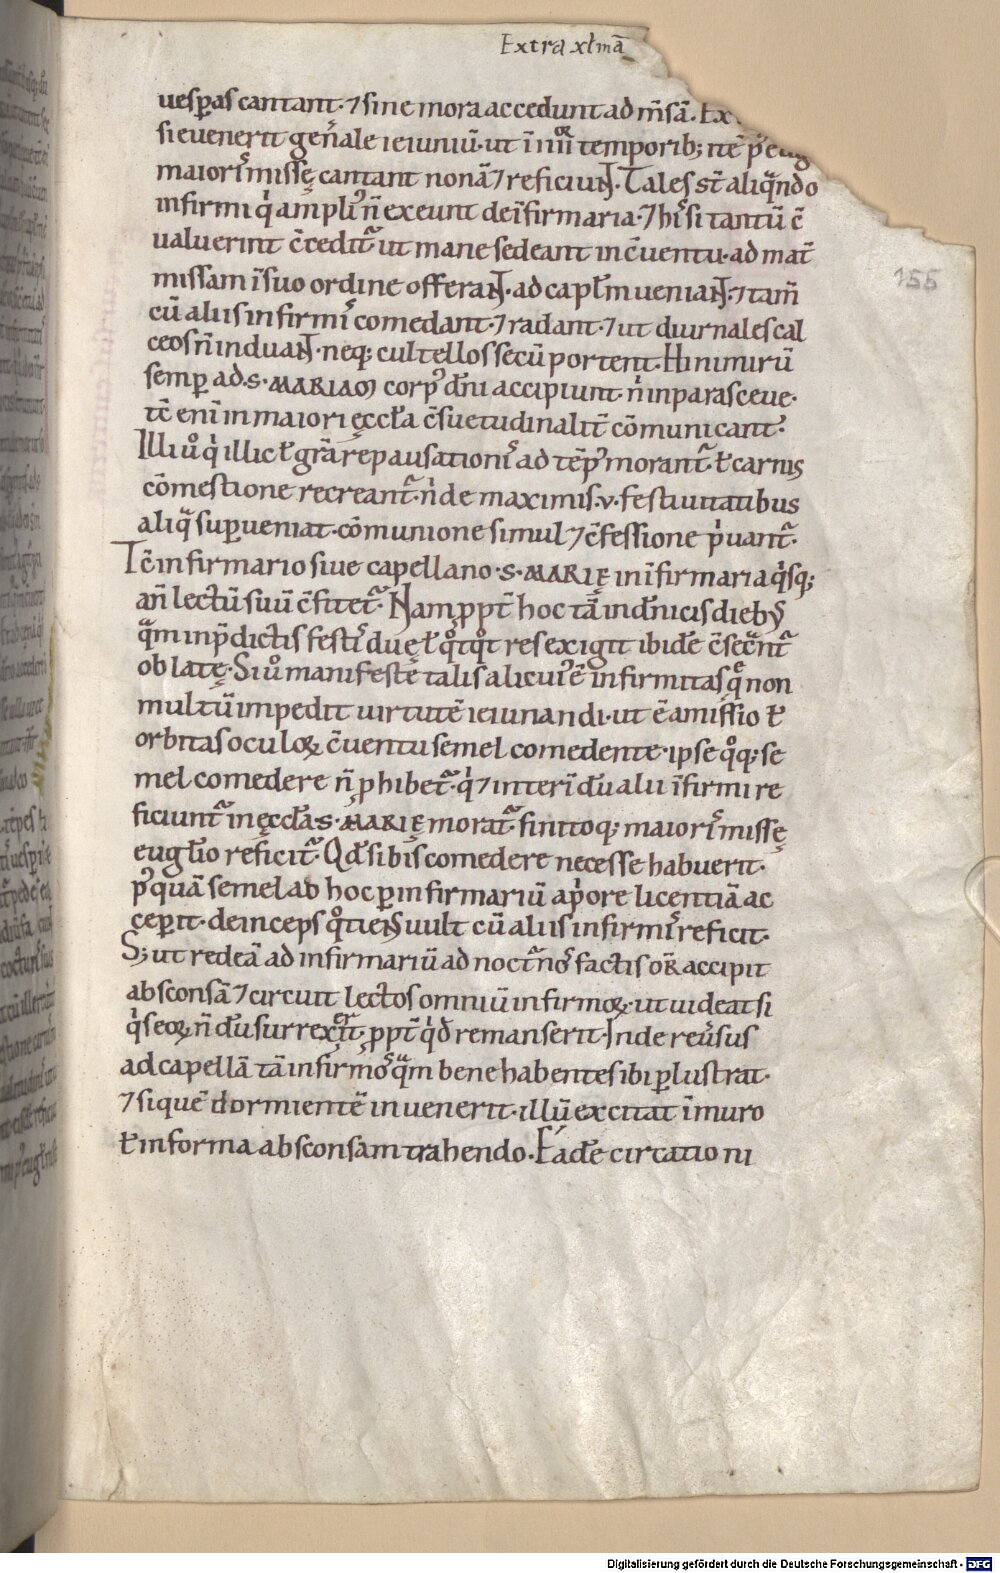 Extra xl̄mā
uesꝑas cantant· ⁊ sine mora accedunt ad m̄sā. Ex
si euenerit geñale ieiuniū· ut ī iiiior temporib; itē p᷒ eug
maiorꝭ missę cantant nonā ⁊ reficiuNT. Tales st̄ aliq̄ndo
infirmi qͥ ampli᷒ n̄ exeunt de īfirmaria· ⁊ hi᷒ si tantū c̄
ualuerint c̄cedit᷑ ut mane sedeant in c̄uentu· ad mat̄
missam ī suo ordine offeraNT· ad capł̄m ueniaNT· ⁊ tam̄
cū aliis infirmꝭ comedant· ⁊ radant· ⁊ ut diurnales cal
ceos n̄ induaNT· neq; cultellos secū portent· Hi nimirū
semꝑ ad·S·MARIAM corp᷒ dn̄i accipiunt· nͥ in parasceue·
tc̄ eni in maiori ęccła c̄suetudinalit̄ cōmunicant·
Illi u͛o qͥ illic ł gr̄a repausationꝭ ad tēp᷒ morant᷑· ł carnis
cōmestione recreant᷑· nͥ de maximis·v·festiuitatibus
aliq̄ suꝑueniat· cōmunione simul ⁊ c̄fessione pͥuant᷑·
Tc̄ infirmario siue capellano·S·MARIĘ in īfirmaria qͥsq;
an̄ lectū suū c̄fitet᷑· Nam ꝓpt̄ hoc tā in dn̄icis dieb᷒
q̄m in p̄dictis festꝭ duę ł qͦtqͦt res exigit ibidē c̄secrant᷑
oblatę· Si u͛o manifestē talis alicui᷒ ē infirmitas q̄ non
multū impedit uirtutē ieiunandi· ut ē amissio ł
orbitas oculoꝝ c̄uentu semel comedente· ipse qͦq; se
mel comedere n̄ ꝓhibet᷑· qͥ ⁊ interī dū alii īfirmi re
ficiunt᷑ in ęccła·S·MARIĘ morat᷑· finitoq; maiorꝭ missę
eugł̄io reficit᷑· Qd̄ si bis comedere necesse habuerit·
p᷒quā semel ab hoc ꝑ infirmariū a pͥore licentiā ac
ceperit· deinceps qͦtieNS uult cū aliis infirmꝭ reficit·
S; ut redeā ad infirmariū ad noct᷑no᷒ factis oR̄ accipit
absconsā ⁊ circuit lectos omniū infirmoꝝ· ut uideat si
qͥs eoꝝ n̄ dū surrexerit· ꝓpt̄ qͥd remanserit· Inde reu͛sus
ad capellā tā infirmo᷒ q̄m bene habentes ibi ꝑlustrat·
⁊ si quē dormientē inuenerit· illū excitat ī muro
ł in forma absconsam trahendo· Eadē circationi
155
Digitalisierung gefördert durch die Deutsche Forschungsgemeinschaft - DFG